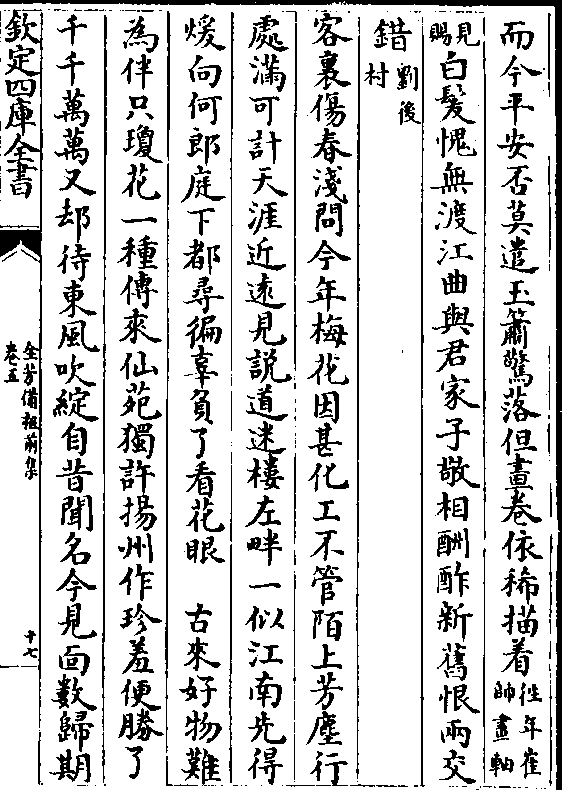 而今平安否莫遣玉簫驚落但畫卷依稀描着往年崔帥畫軸
見賜白髮愧無渡江曲與君家子敬相酬酢新舊恨兩交
錯劉後村
客裏傷春淺問今年梅花因甚化工不管陌上芳塵行
處滿可計天涯近遠見説道迷樓左畔一似江南先得
煖向何郎庭下都尋徧辜負了看花眼　古來好物難
為伴只瓊花一種傳來仙苑獨許揚州作珍羞便勝了
千千萬萬又却待東風吹綻自昔聞名今見面數歸期
欽定四庫全書
全芳備祖前集
卷五
十七